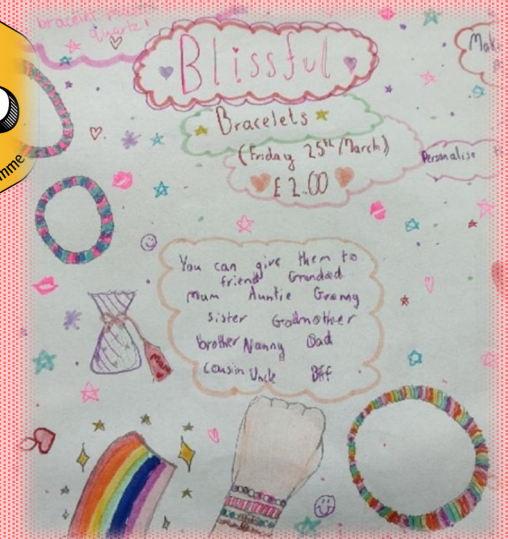 bracelet
quartz!
Blissful
Mak
Bracelets
(Friday 25th March)
Personalise
£2.00
You can give them to
friend Grandad
mum Auntie Granny
sister Godmother
brother Nanny Dad
cousin Uncle Bff
mme